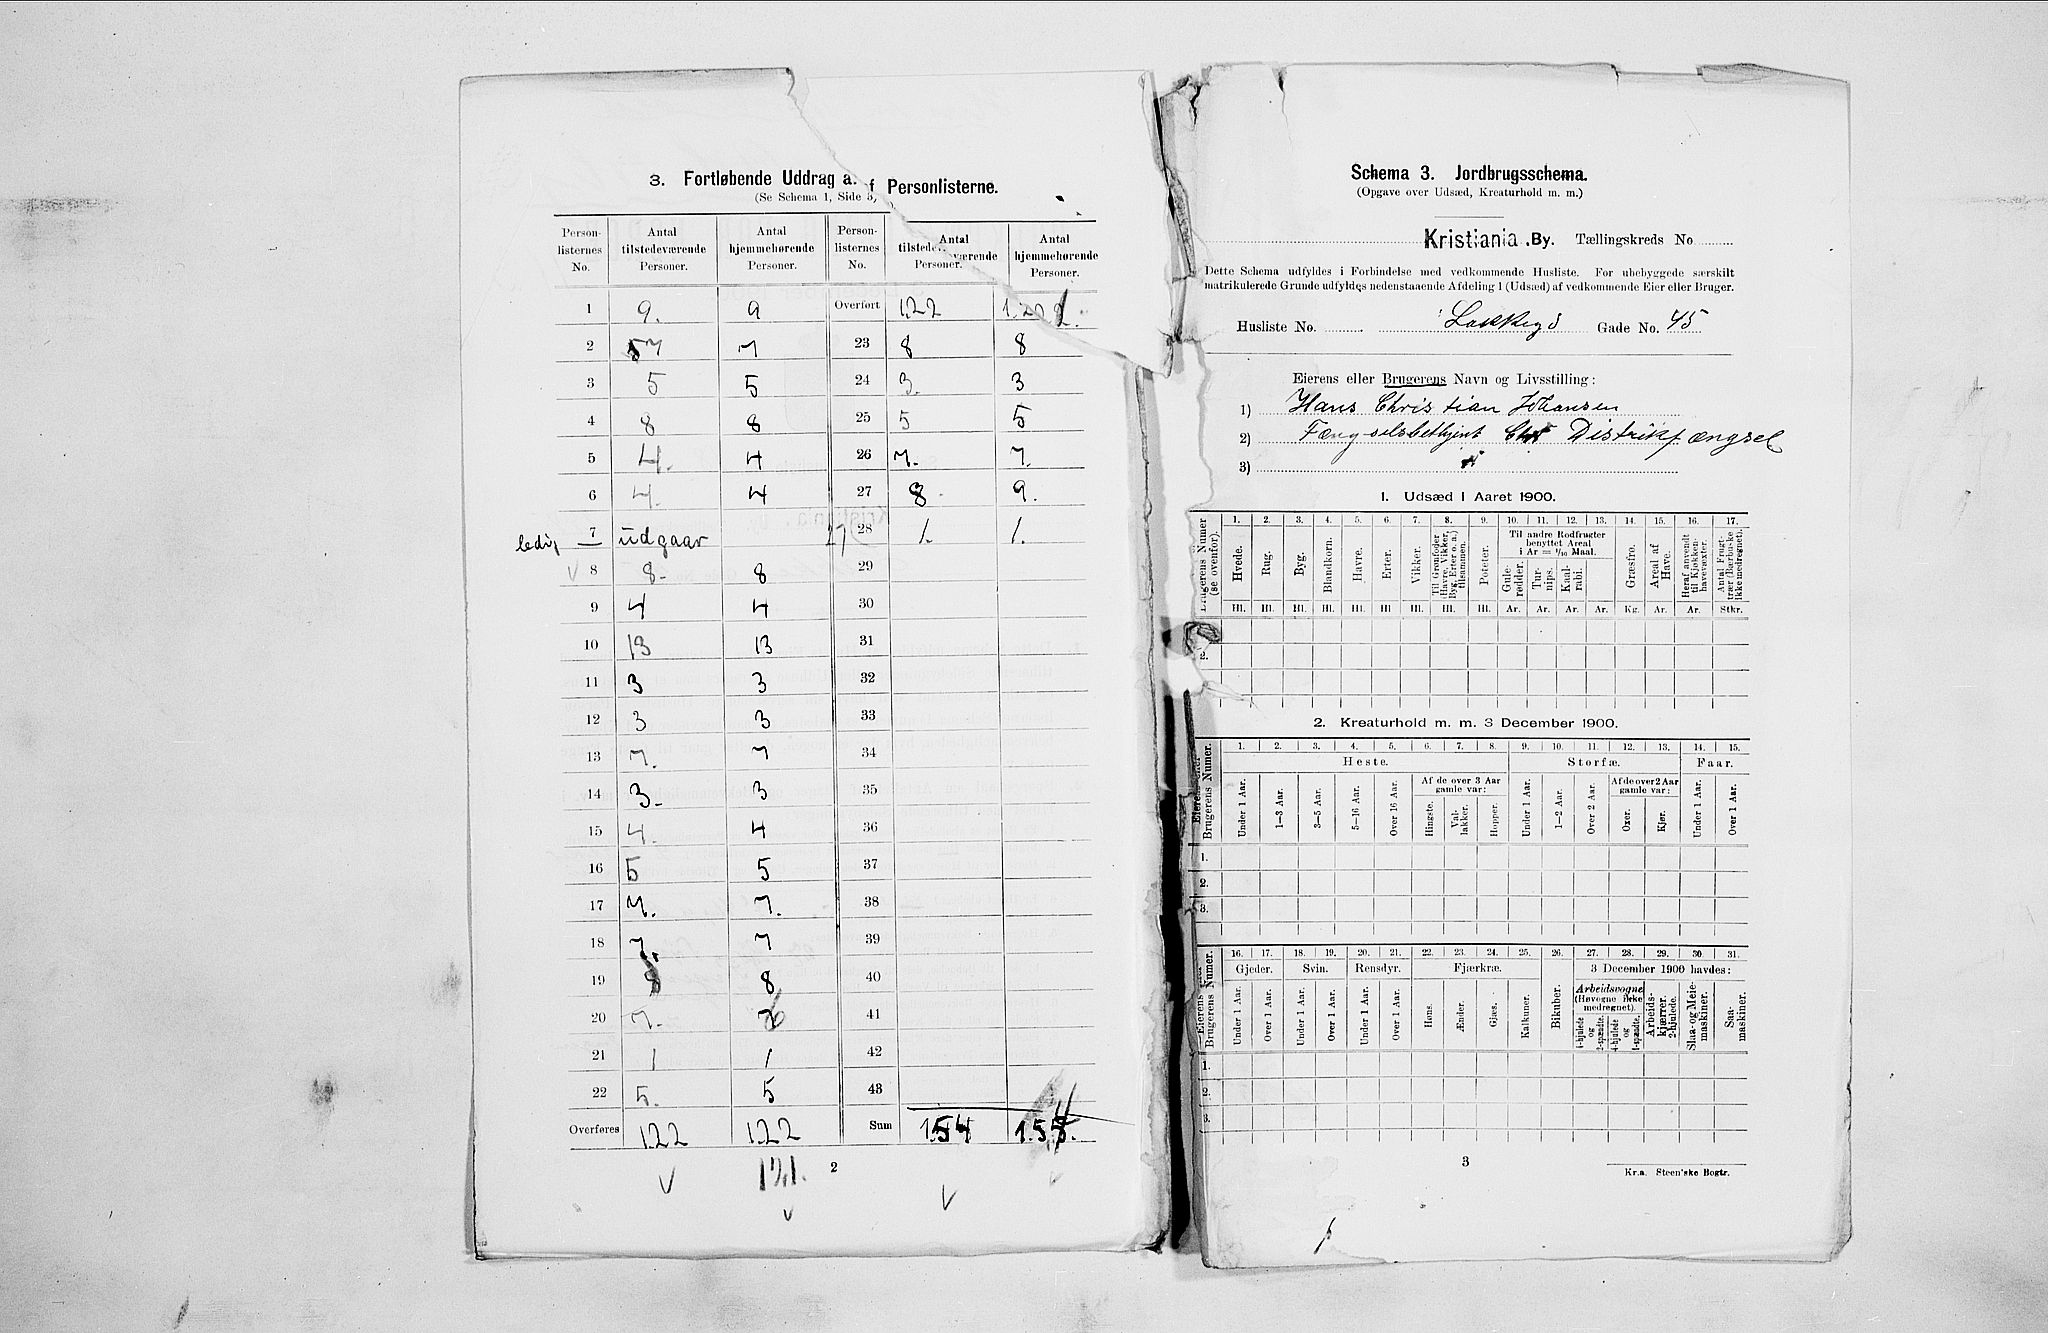 3. Fortløbende Uddrag a. f Personlisterne.
(Se Schema 1, Side 3,
Person-listernes No. | Antal tilstedeværende Personer. | Antal hjemmehørende Personer. | Person-listernes No. | Antal tilstedeværende Personer. | Antal hjemmehørende Personer.
1 | 9. | 9 | Overført | 122 | 122.
2 | 7 | 7 | 23 | 8 | 8
3 | 5 | 5 | 24 | 3. | 3
4 | 8 | 8 | 25 | 5 | 5
5 | 4. | 4 | 26 | 7. | 7.
6 | 4. | 4 | 27 | 8. | 9.
ledig 7 | udgaar | | 27 28 | 1. | 1.
8 | 8. | 8 | 29
9 | 4 | 4 | 30
10 | 13 | 13 | 31
11 | 3 | 3 | 32
12 | 3 | 3 | 33
13 | 7. | 7 | 34
14 | 3. | 3 | 35
15 | 4. | 4 | 36
16 | 5 | 5 | 37
17 | 7. | 7. | 38
18 | 7. | 7 | 39
19 | 8 | 8 | 40
20 | 7. | | 41
21 | 1 | 1 | 42
22 | 5. | 5 | 43
Overføres | 122 | 122 | Sum | 154 | 15
121.
2
Schema 3. Jordbrugsschema.
(Opgave over Udsæd, Kreaturhold m. m.)
Kristiania By. Tællingskreds No
Dette Schema udfyldes i Forbindelse med vedkommende Husliste. For ubebyggede særskilt
matrikulerede Grunde udfyldes nedenstaaende Afdeling 1 (Udsæd) af vedkommende Eier eller Bruger.
Husliste No. Lakkegd Gade No. 45
Eierens eller Brugerens Navn og Livsstilling:
1) Hans Christian Johansen
2) Fængselsbetjent Distriktfængsel
3)
1. Udsæd i Aaret 1900.
Brugerens Numer (se ovenfor).
1. | 2. | 3. | 4. | 5. | 6. | 7. | 8. | 9. | 10. | 11. | 12. | 13. | 14. | 15. | 16. | 17.
Hvede. | Rug. | Byg. | Blandkorn. | Havre. | Erter. | Vikker. | Til Grønfoder (Havre, Vikker, Byg, Erter o. a.) tilsammen. | Poteter. | Til andre Rodfrugter benyttet Areal i Ar = 1/10 Maal. | Gulerødder. | Turnips. | Kaalrabi. | Græsfrø. | Areal af Have. | Heraf anvendt til Kjøkkenhavevæxter. | Antal Frugttrær (Bærbuske ikke medregnet).
Hl. | Hl. | Hl. | Hl. | Hl. | Hl. | Hl. | Hl. | Hl. | Ar. | Ar. | Ar. | Ar. | Kg. | Ar. | Ar. | Stkr.
2.
2. Kreaturhold m. m. 3 December 1900.
Eierens eller Brugerens Numer.
1. | 2. | 3. | 4. | 5. | 6. | 7. | 8. | 9. | 10. | 11. | 12. | 13. | 14. | 15.
Heste. | Storfæ. | Faar.
Af de over 3 Aar gamle var: | Af de over 2 Aar gamle var:
Under 1 Aar. | 1—3 Aar. | 3—5 Aar. | 5—16 Aar. | Over 16 Aar. | Hingste. | Vallakker. | Hopper. | Under 1 Aar. | 1—2 Aar. | Over 2 Aar. | Oxer. | Kjør. | Under 1 Aar. | Over 1 Aar.
1.
2.
3.
Eierens eller Brugerens Numer.
16. | 17. | 18. | 19. | 20. | 21. | 22. | 23. | 24. | 25. | 26. | 27. | 28. | 29. | 30. | 31.
Gjeder. | Svin. | Rensdyr. | Fjærkræ. | Bikuber. | 3 December 1900 havdes:
Under 1 Aar. | Over 1 Aar. | Under 1 Aar. | Over 1 Aar. | Under 1 Aar. | Over 1 Aar. | Høns. | Ænder. | Gjæs. | Kalkuner. | Arbeidsvogne (Høvogne ikke medregnet). | 4-hjulede og 2-spændte. | 4-hjulede og 1-spændte. | Arbeidskjærrer, 2-hjulede. | Slaa- og Meiemaskiner. | Saamaskiner.
1.
2.
3.
3
Kr.a. Steen'ske Bogtr.